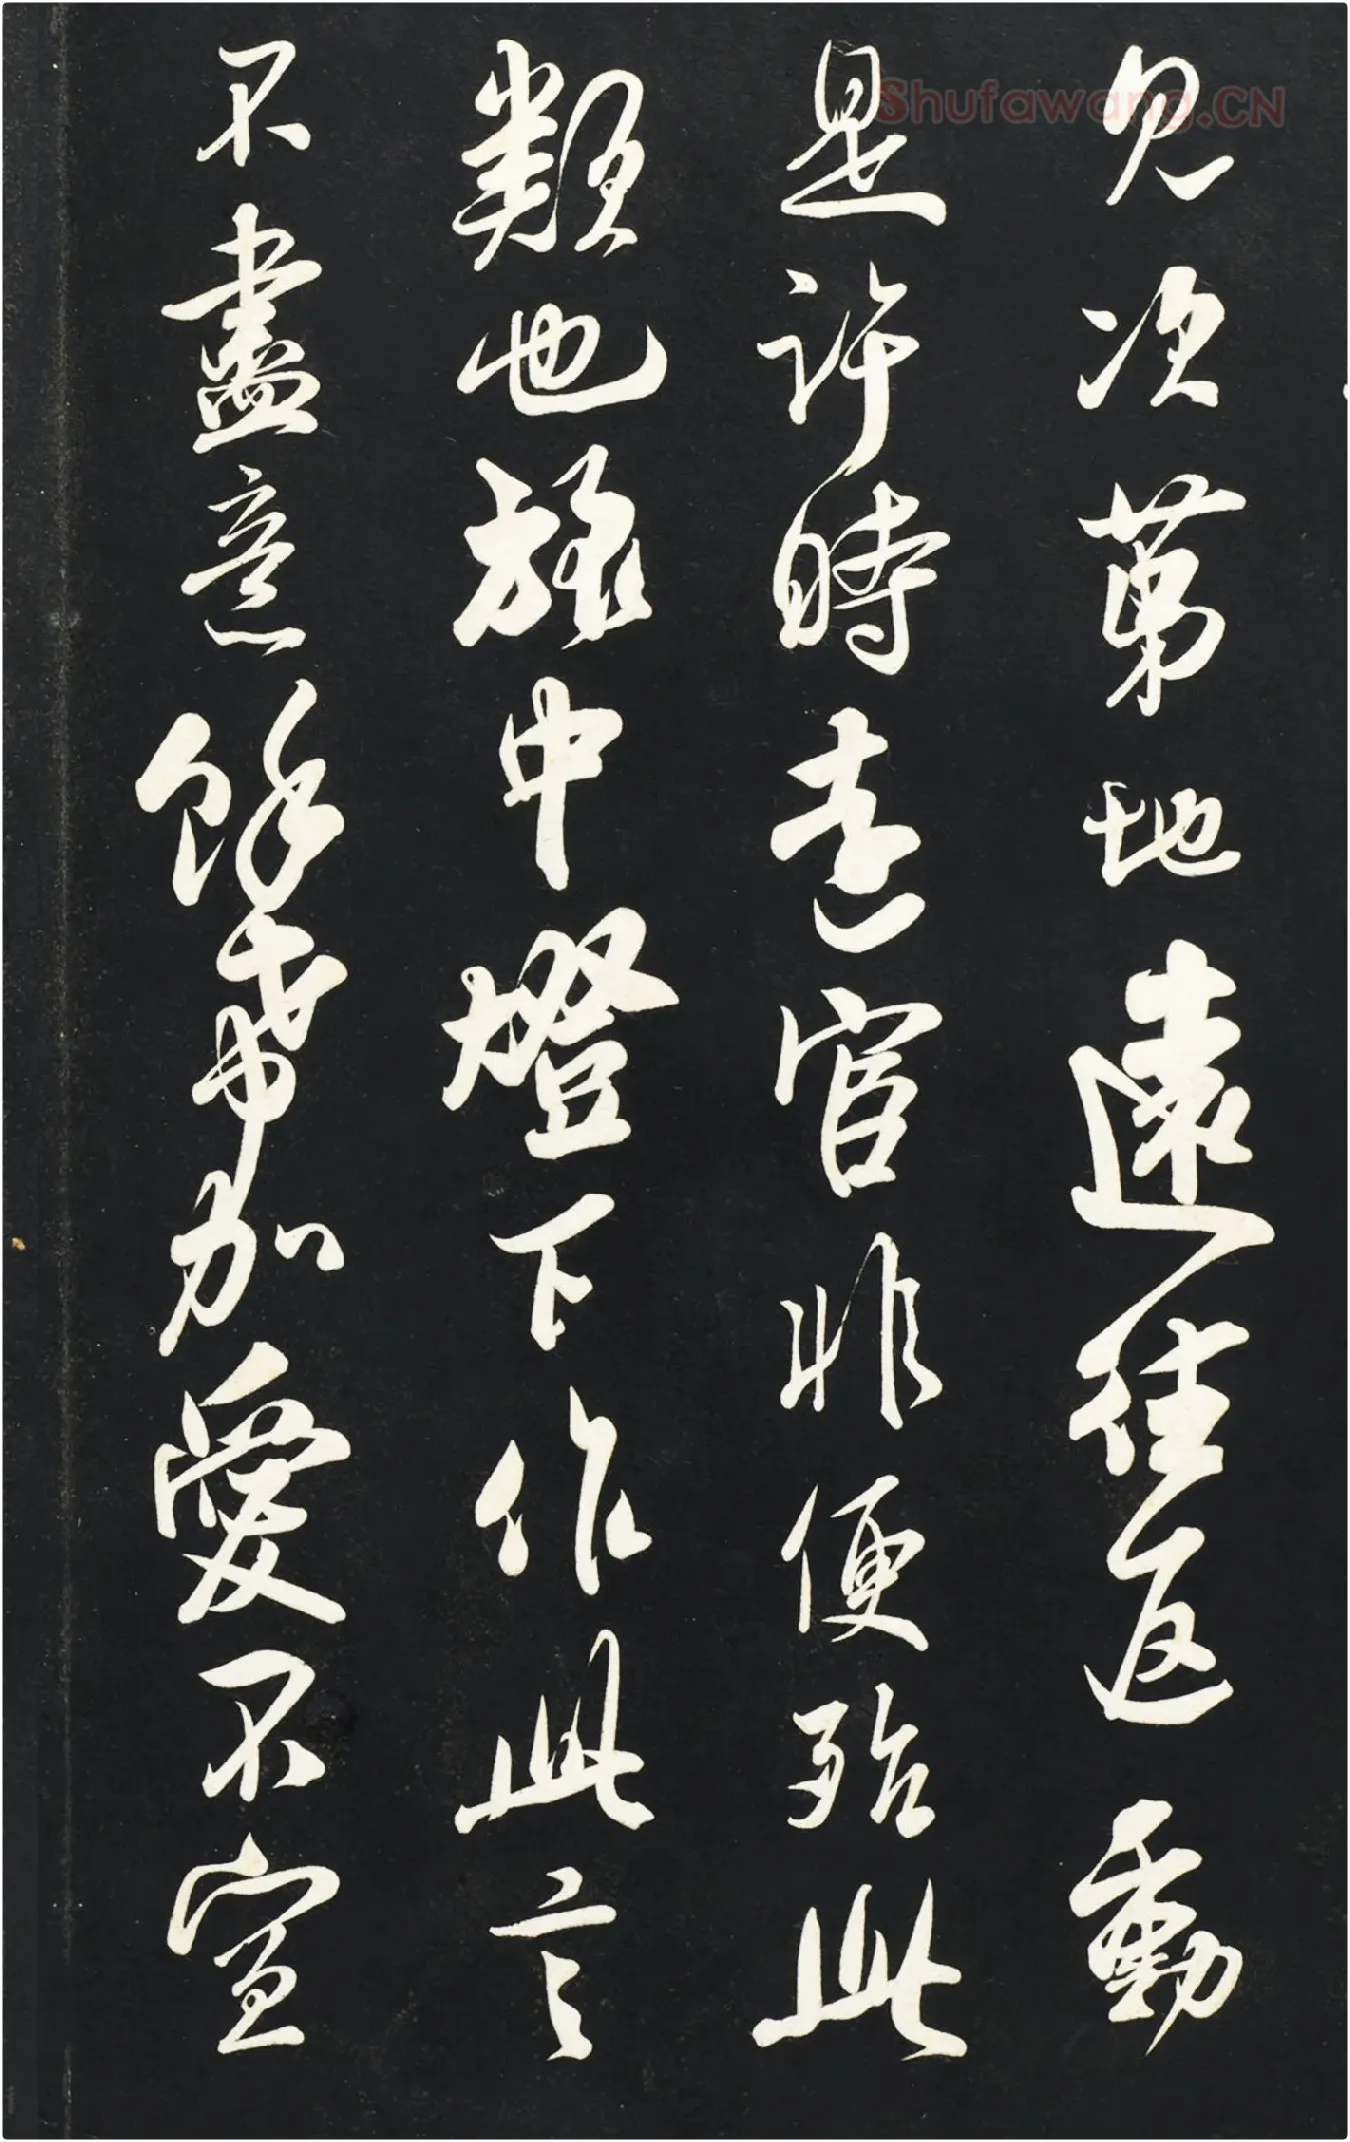 Shufawang.CN
見次第地遠往返動
是許時遠官非便殆此
類也旅中燈下作此言
不盡意餘希加愛不宣